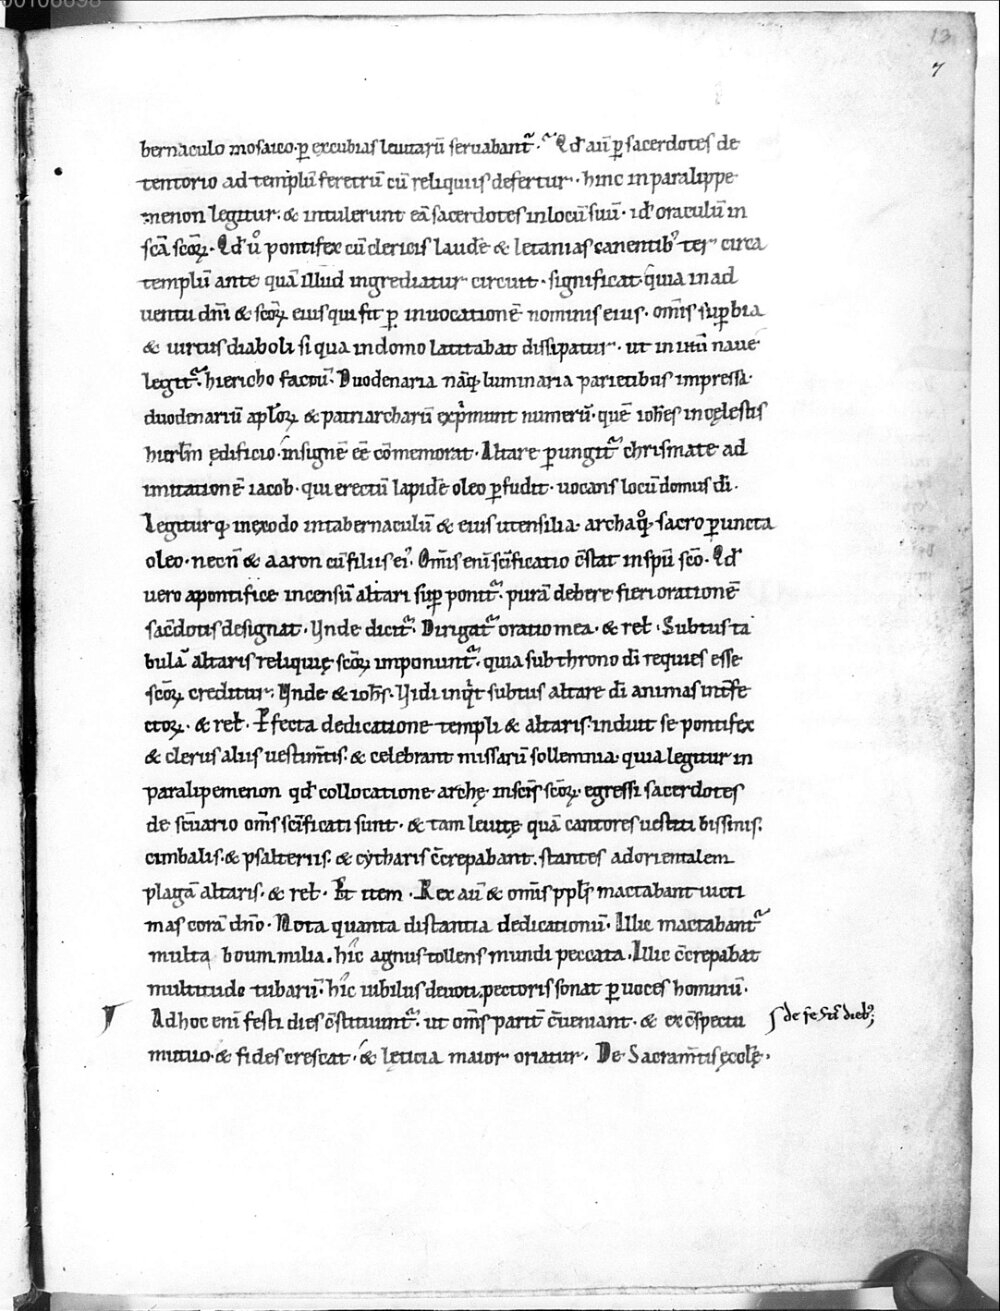 00106698
13
7
bernaculo mosaico· ꝑ excubias leuitarū seruabant᷑. Qđ aū ꝑ sacerdotes de
tentorio ad templū feretrū cū reliquiis defertur· hinc in paralippe
menon legitur· & intulerunt eā sacerdotes in locū suū· id ͛ oraculū in
sc̄a sc̄oꝝ· Qđ u͛o pontifex cū clericis laudē & letanias canentib᷒ ter circa
templū ante quā illud ingrediatur circuit· significat quia in ad
uentu dn̄i & sc̄oꝝ eius qui fit ꝑ inuocationē nominis eius· om̄is suꝑbia
& uirtus diaboli si qua in domo latitabat dissipatur· ut in
legit᷑ hiericho factū· Duodenaria nāq luminaria parietibus impressa
duodenariū apl̄oꝝ & patriarcharū exp̄munt numerū· quē ioh̄es in cęlestis
hierl̄m ędificio insignē ēē cōmemorat· Altare ꝑungit᷑ chrismate ad
imitationē iacob· qui erectū lapidē oleo ꝑfudit· uocans locū domus dī·
Legitur q· in exodo intabernaculū & eius utensilia archaq· sacro ꝑuncta
oleo· necn̄ & aaron cū filiis ei᷒· Om̄is enī sc̄ificatio c̄stat in sp̄u sc̄o· Qđ
uero a pontifice incensū altari suꝑ ponit᷑· purā debere fieri orationē
sac̄dotis designat· Unde dicit᷑· Dirigat᷑ oratio mea· & rel̄· Subtus ta
bulā altaris reliquię sc̄oꝝ imponunt᷑· quia sub throno dī requies esse
sc̄oꝝ creditur· Unde & ioh̄s· Uidi inqͥt subtus altare dī animas int̄fe
ctoꝝ· & rel̄· Pfecta dedicatione templi & altaris· induit se pontifex
& clerus aliis uestim̄tis· & celebrant missarū sollemnia· quia legitur in
paralipemenon qđ collocatione archę in sc̄is sc̄oꝝ egressi sacerdotes
de sc̄uario om̄s sc̄ificati sunt· & tam leuitę quā cantores uestiti bissinis·
cimbalis· & psalteriis· & cytharis c̄crepabant· stantes ad orientalem
plagā altaris· & rel̄· Et item· Rex aū & omīs ppl̄s mactabant uicti
mas corā dn̄o· Nota quanta distantia dedicationū· Illic mactabant᷑
multa boum milia· hic agnus tollens mundi peccata· Illic c̄crepabat
multitudo tubarū· hic iubilus deuoti pectoris sonat ꝑ uoces hominū·
Ad hoc enī festi dies c̄stituunt᷑· ut om̄s parit̄ c̄ueniant· & ex c̄spectu
de festis dieb᷒;
mutuo· & fides crescat· & lęticia maior oriatur· De Sacram̄tis ęcclę·